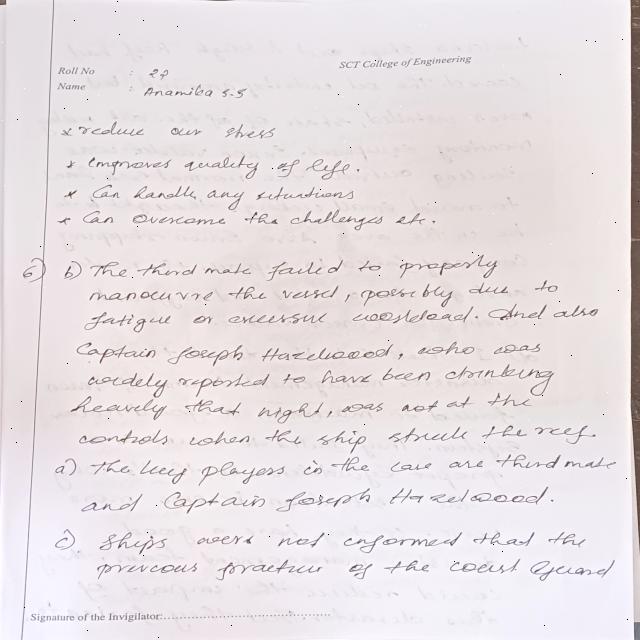 SCT College of Engineering
Roll No : 27
Name : Anamiba S.S
* reduce our stress
* improves quality of life.
* Can handle any situations
* Can overcome the challenges etc.
6) b) The third mate failed to properly
manoeuvre the vessel, possibly due to
fatigue or excessive workload. And also
Captain Joseph Hazelwood, who was
widely reported to have been drinking
heavily that night, was not at the
controls when the ship struck the reef.
a) The key players in the case are third mate
and Captain Joseph Hazelwood.
c) Ships were not informed that the
previous practice of the coast guard
Signature of the Invigilator: